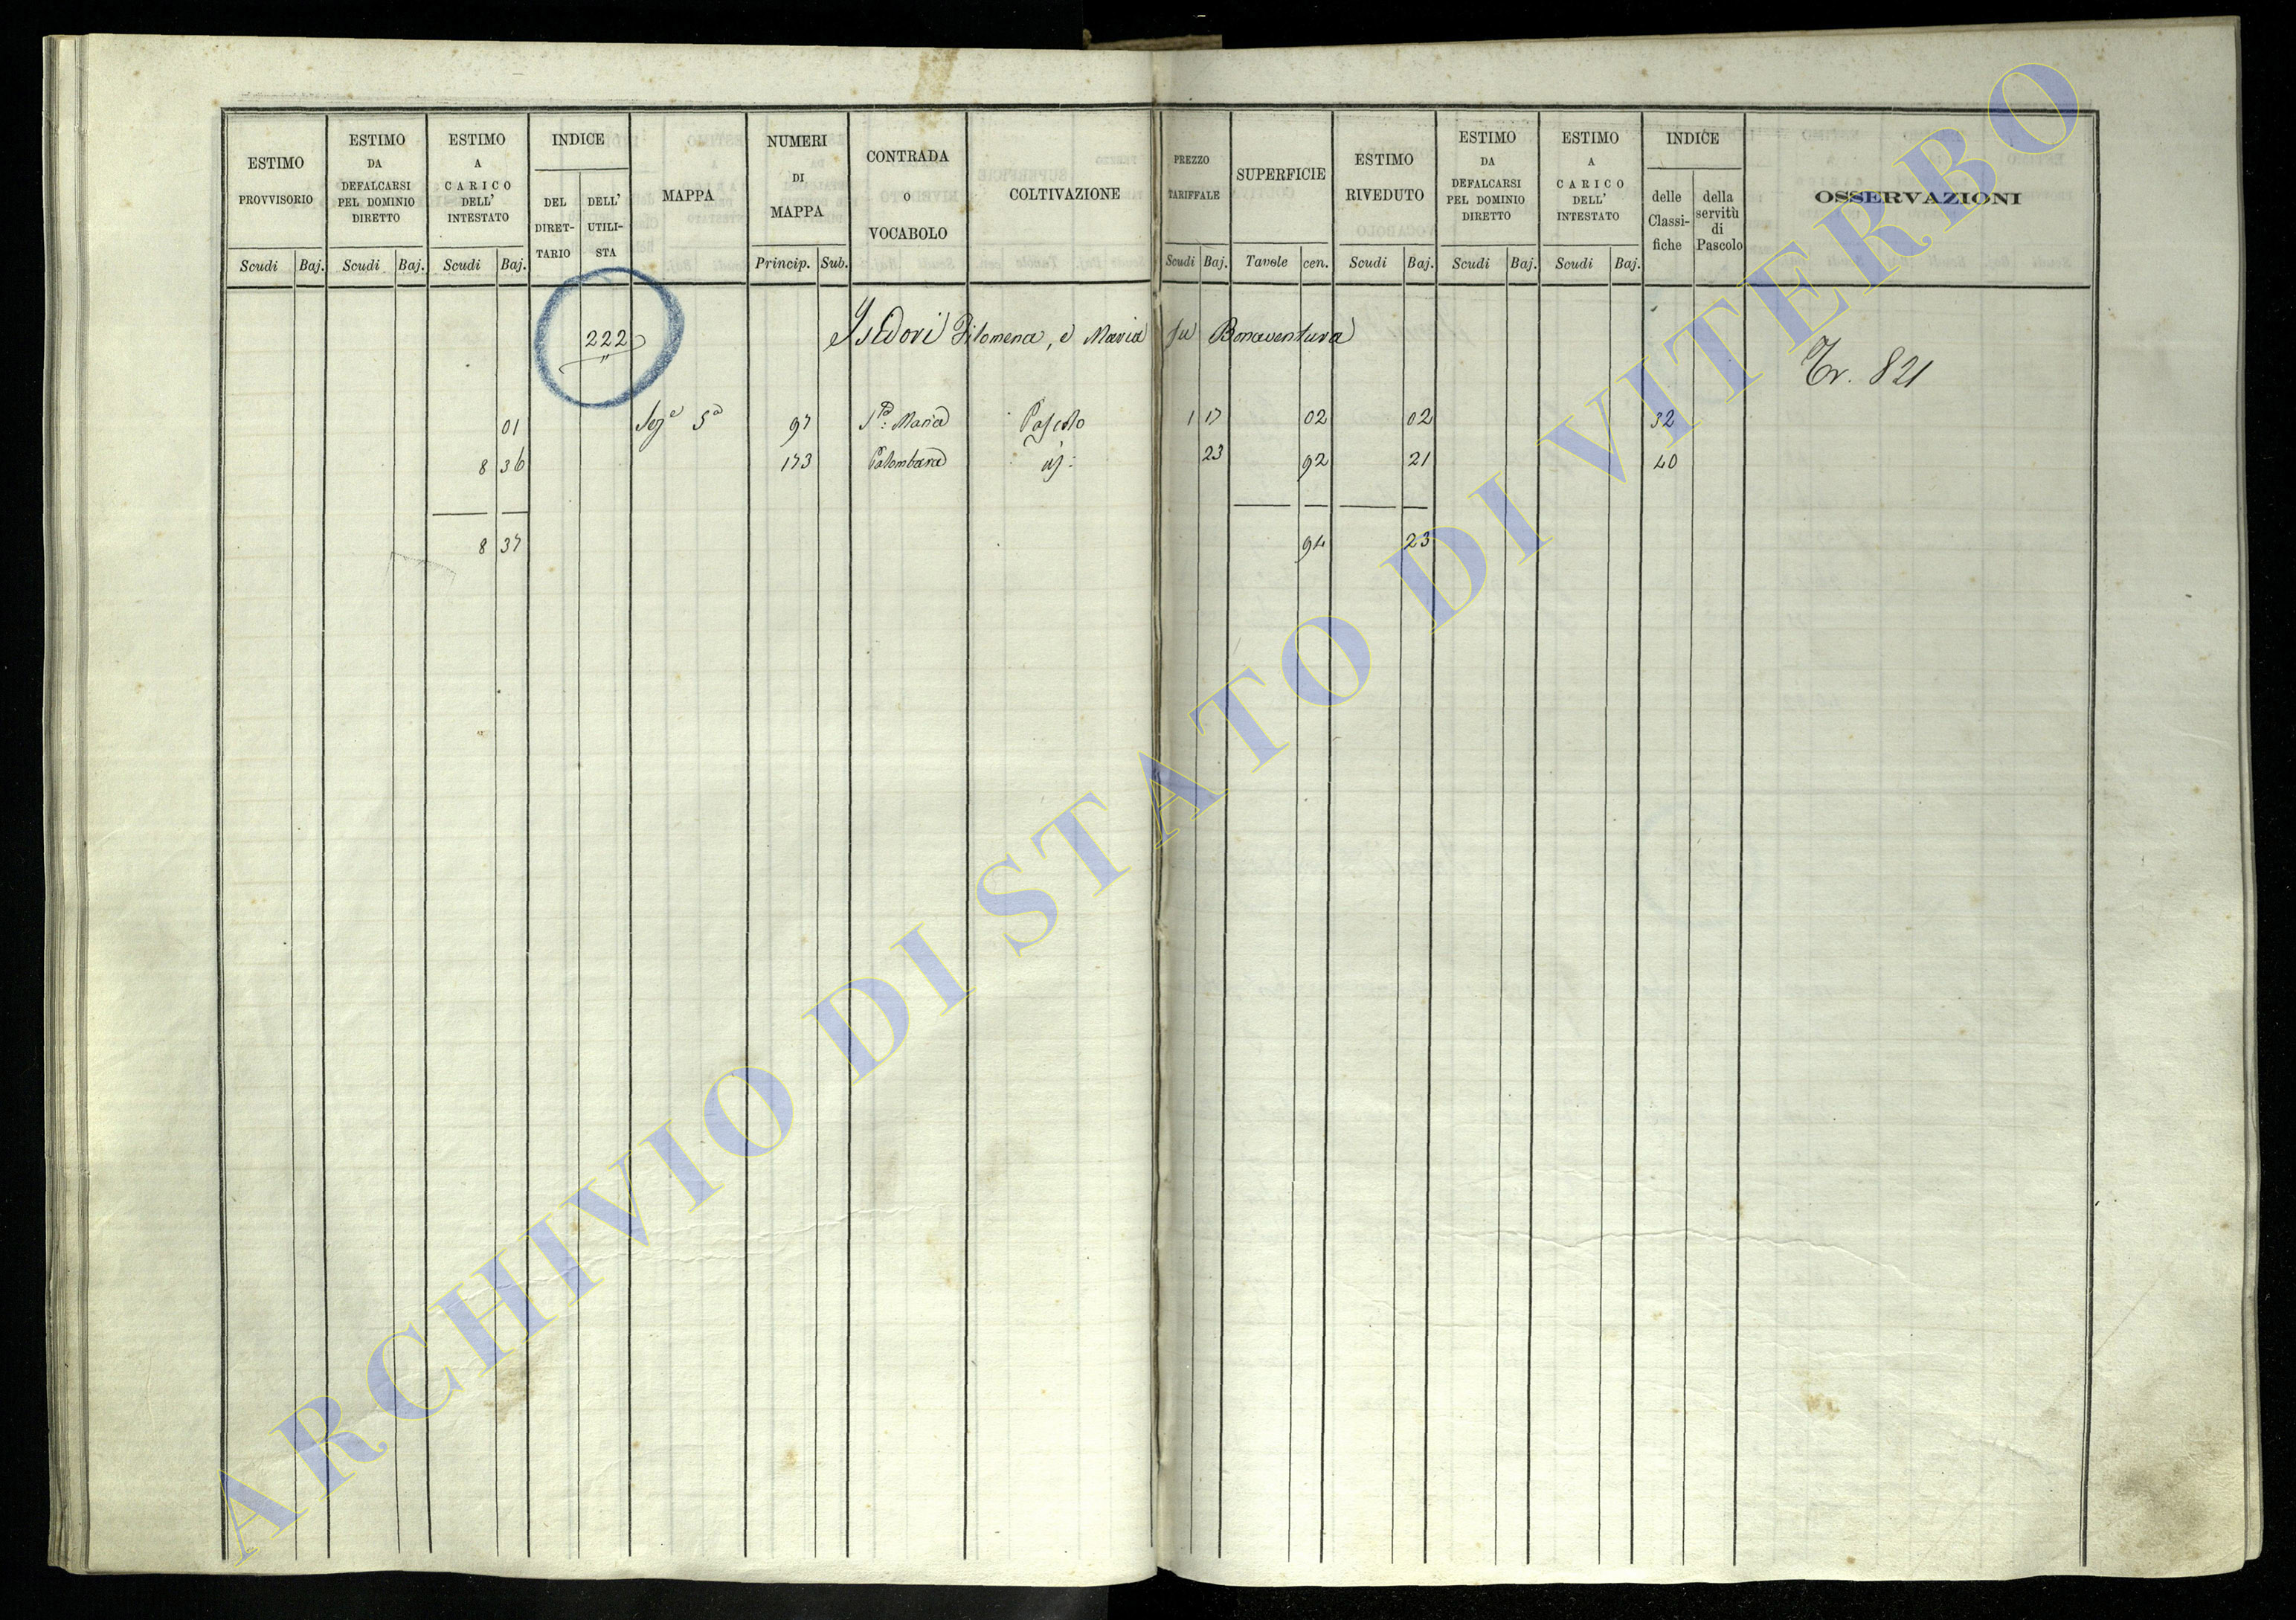 ESTIMO PROVVISORIO
Scudi Baj.
ESTIMO DA DEFALCARSI PEL DOMINIO DIRETTO
Scudi Baj.
ESTIMO A CARICO DELL' INTESTATO
Scudi Baj.
INDICE
DEL DIRET-TARIO
DELL' UTILI-STA
MAPPA
NUMERI DI MAPPA
Princip. Sub.
CONTRADA o VOCABOLO
COLTIVAZIONE
PREZZO TARIFFALE
Scudi Baj.
SUPERFICIE
Tavole cen.
ESTIMO RIVEDUTO
Scudi Baj.
ESTIMO DA DEFALCARSI PEL DOMINIO DIRETTO
Scudi Baj.
ESTIMO A CARICO DELL' INTESTATO
Scudi Baj.
INDICE
delle Classi-fiche
della servitù di Pascolo
OSSERVAZIONI
222 Isidori Filomena, e Maria fu Bonaventura
Tr. 821
01 Sez.e 5a 97 Sa: Maria Pascolo 1 17 02 02 32
8 36 173 Palombara 23 92 21 40
8 37 94 23
ARCHIVIO DI STATO DI VITERBO